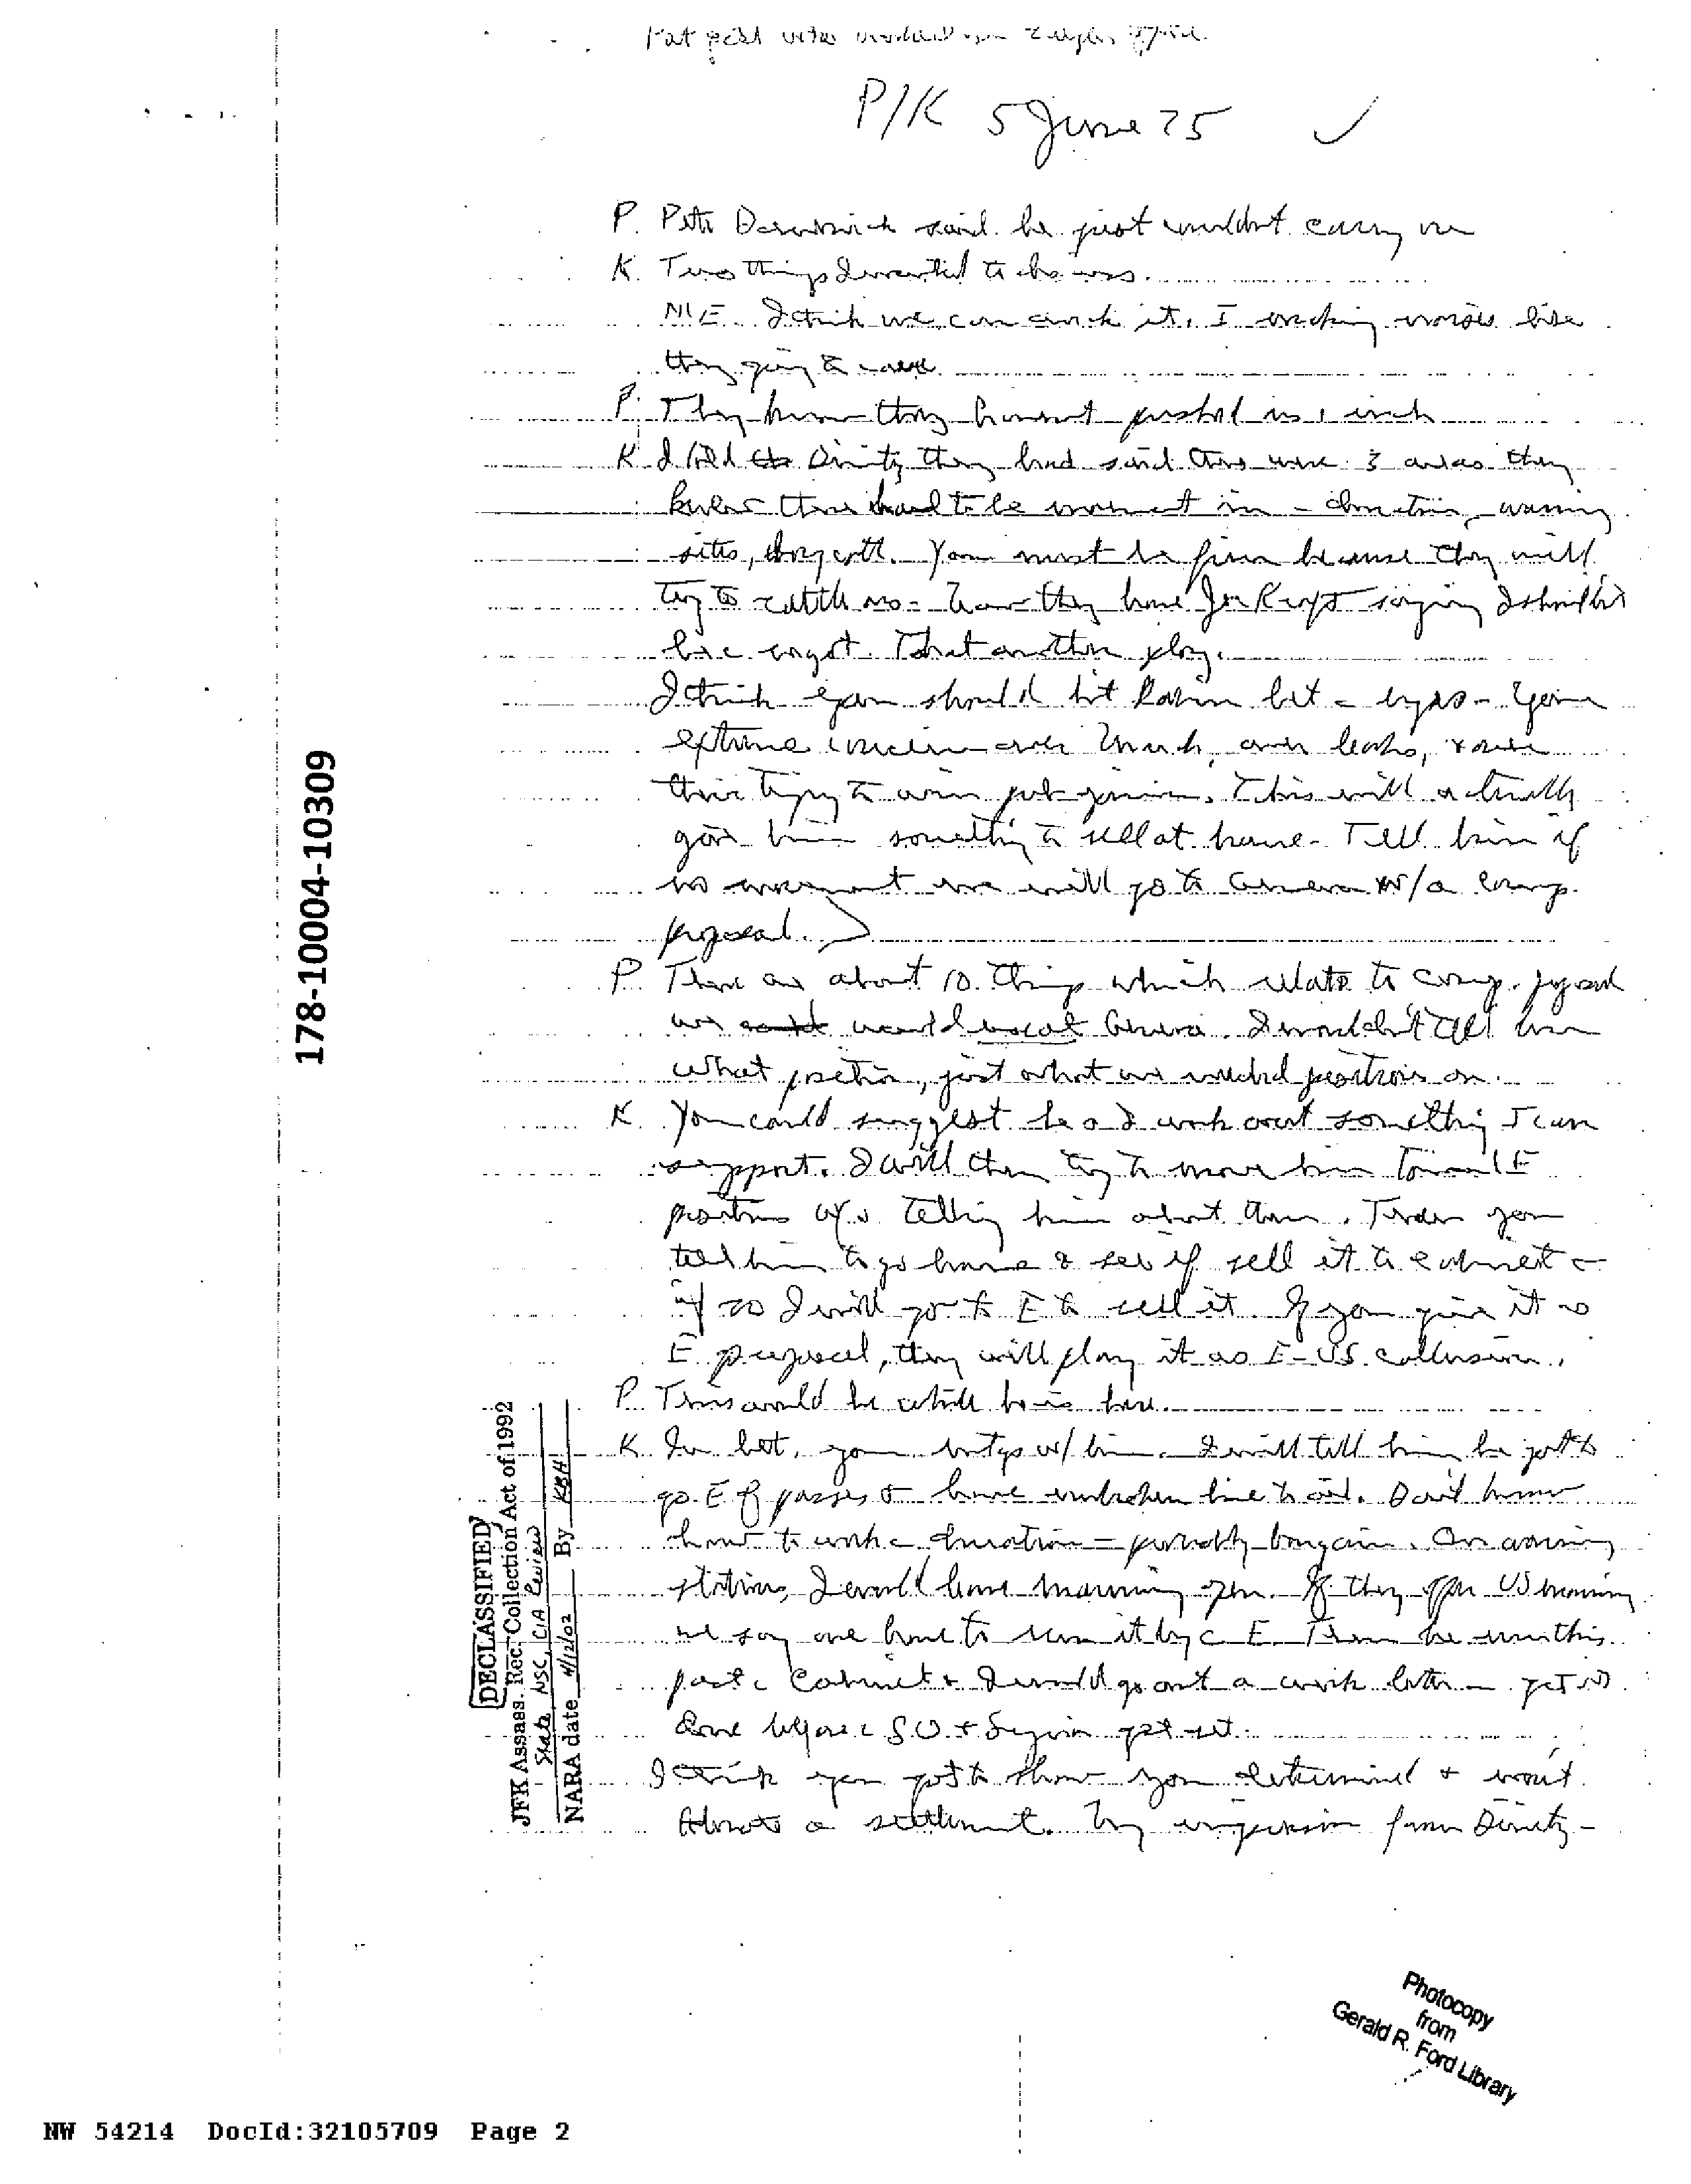 P/K 5 June 75 ✓
P. Pete said he just wouldn't carry on
K. Two things I wanted to discuss.
ME. I think we can crack it. I making noises like
they going to move.
P. They know they haven't pushed us 1 inch
K I told Dinitz they had said there were 3 areas they
knew there had to be movement in - duration, warning
sites, boycott. You must be firm because they will
try to rattle us - Now they have Joe Kraft saying I shouldn't
be c. That another ploy.
I think you should hit Rabin bet - eyes - Your
extreme concern over March, over leaks, & over
their trying to win pub opinion. This will actually
give him something to sell at home. Tell him if
no movement we will go to Geneva w/a comp.
proposal.
P. There are about 10 things which relate to comp. proposal
we would need at Geneva. I wouldn't tell him
what position, just what we needed positions on.
K. You could suggest he & I work out something I can
support. I will then try to move him toward E
positions w/o telling him about them. Then you
tell him to go home & see if sell it to c cabinet -
if so I will go to E to sell it. If you give it as
E proposal, they will play it as E-US collusion.
P. This would be while he is here.
K. In bet. your mtgs w/ him. I will tell him he got to
go E of passes & have unbroken line to oil. Don't know
how to work c duration - probably bargain. On warning
stations, I would leave manning open. If they offer US manning
we say we have to run it by c E. Then he run this
past c Cabinet & I would go out a week later - get it
done before c SU & Syria get set.
I think you got to show you determined & won't
a settlement. My impression from Dinitz -
178-10004-10309
DECLASSIFIED
JFK Assass. Rec. Collection Act of 1992
State, NSC, CIA Review
NARA date 4/12/02 By KBH
Photocopy
from
Gerald R. Ford Library
NW 54214 DocId:32105709 Page 2